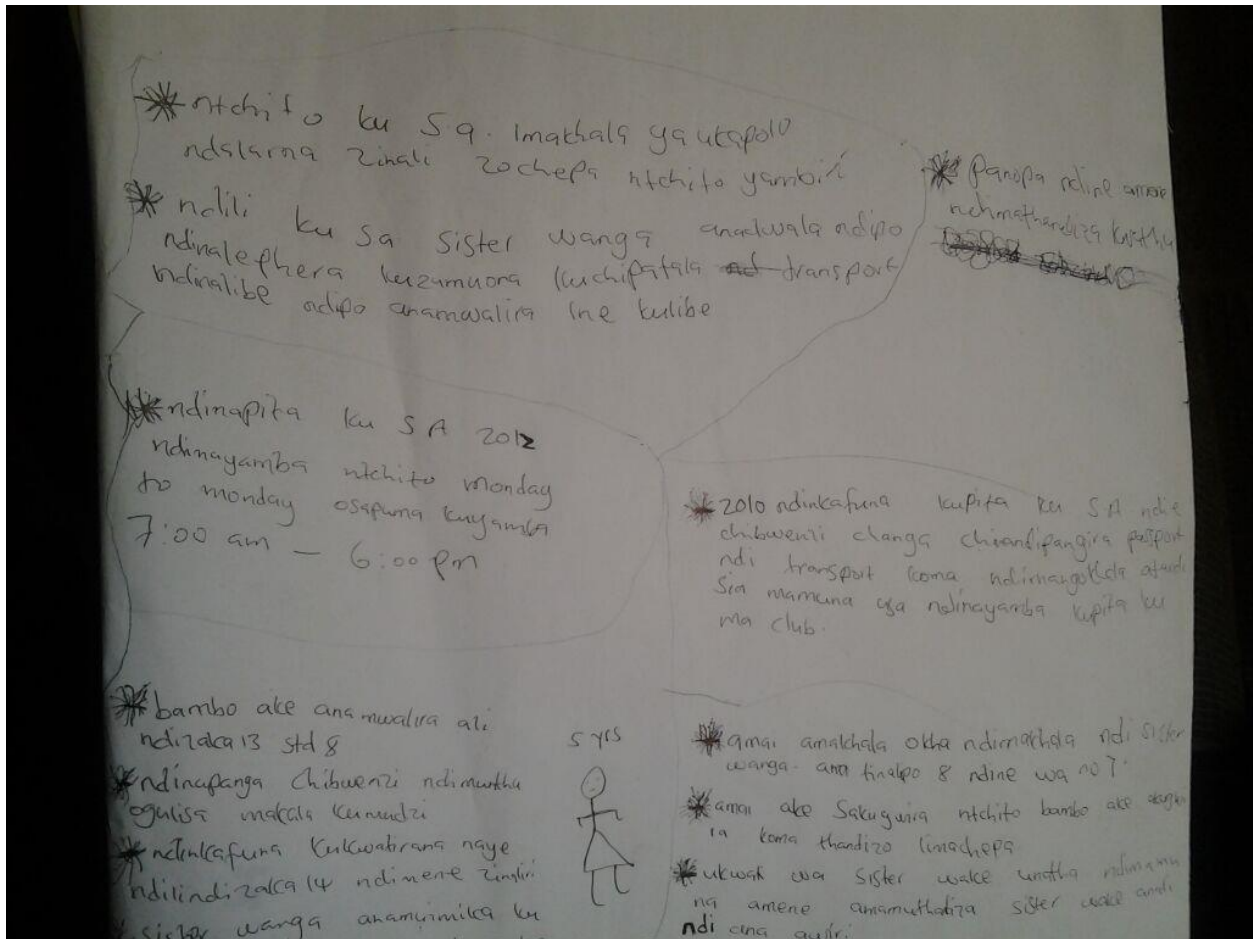 * ntchito ku S.a. imakhala ya ukapolo
ndalama zinali zochepa ntchito yambiri
* ndili ku Sa sister wanga anadwala ndipo
ndinalephera kuzamuona kuchipatala transport
ndinalibe ndipo anamwalira ine kulibe
* Panopa ndine amene
ndimathandiza kwathu
* ndinapita ku SA 2012
ndinayamba ntchito monday
to monday osapuma kuyamba
7:00 am — 6:00 pm
* 2010 ndinkafuna kupita ku SA ndie
chibwenzi changa chinandipangira passport
ndi transport koma ndimangokhala
Sia mamuna uja ndinayamba kupita ku
ma club.
* bambo ake anamwalira ali
ndizaka 13 std 8
* ndinapanga Chibwenzi ndimunthu
ogulisa makala kumudzi
* ndinkafuna kukwatirana naye
ndilindizaka 14 ndimene zinaliri
* sister wanga anamuimika ku
5 yrs
* amai amakhala okha ndimakhala ndi sister
wanga. ana tinalipo 8 ndine wa no 7.
* amai ake Sakugwira ntchito bambo ake
koma thandizo limachepa.
* ukwati wa sister wake unatha
na amene amamuthadiza sister wake anali
ndi ana awiri.